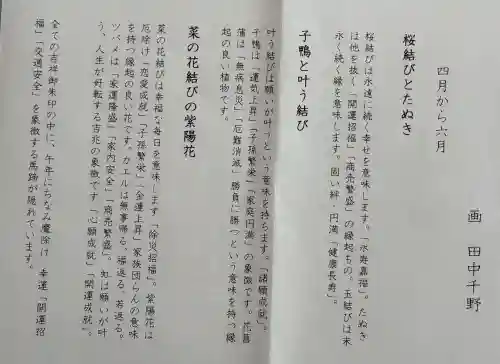 四月から六月
画 田中千野
桜結びとたぬき
桜結びは永遠に続く幸せを意味します。「永寿嘉福」。たぬき
は他を抜く「開運招福」「商売繁盛」の縁起もの。玉結びは末
永く続く縁を意味します。固い絆・円満「健康長寿」。
子鴨と叶う結び
叶う結びは願いが叶うという意味を持ちます。「諸願成就」。
子鴨は「運気上昇」「子孫繁栄」「家庭円満」の象徴です。花菖
蒲は「無病息災」「厄難消滅」勝負に勝つという意味を持つ縁
起の良い植物です。
菜の花結びの紫陽花
菜の花結びは幸福な毎日を意味します「除災招福」。紫陽花は
厄除け「恋愛成就」「子孫繁栄」「金運上昇」家族団らんの意味
を持つ縁起の良い花です。カエルは無事帰る。福返る。若返る。
ツバメは「家運隆盛」「家内安全」「商売繁盛」。知は願いが叶
う、人生が好転する吉兆の象徴です「心願成就」「開運成就」。
全ての吉祥御朱印の中に、午年にちなみ魔除け 幸運「開運招
福」「交通安全」を象徴する馬蹄が隠れています。